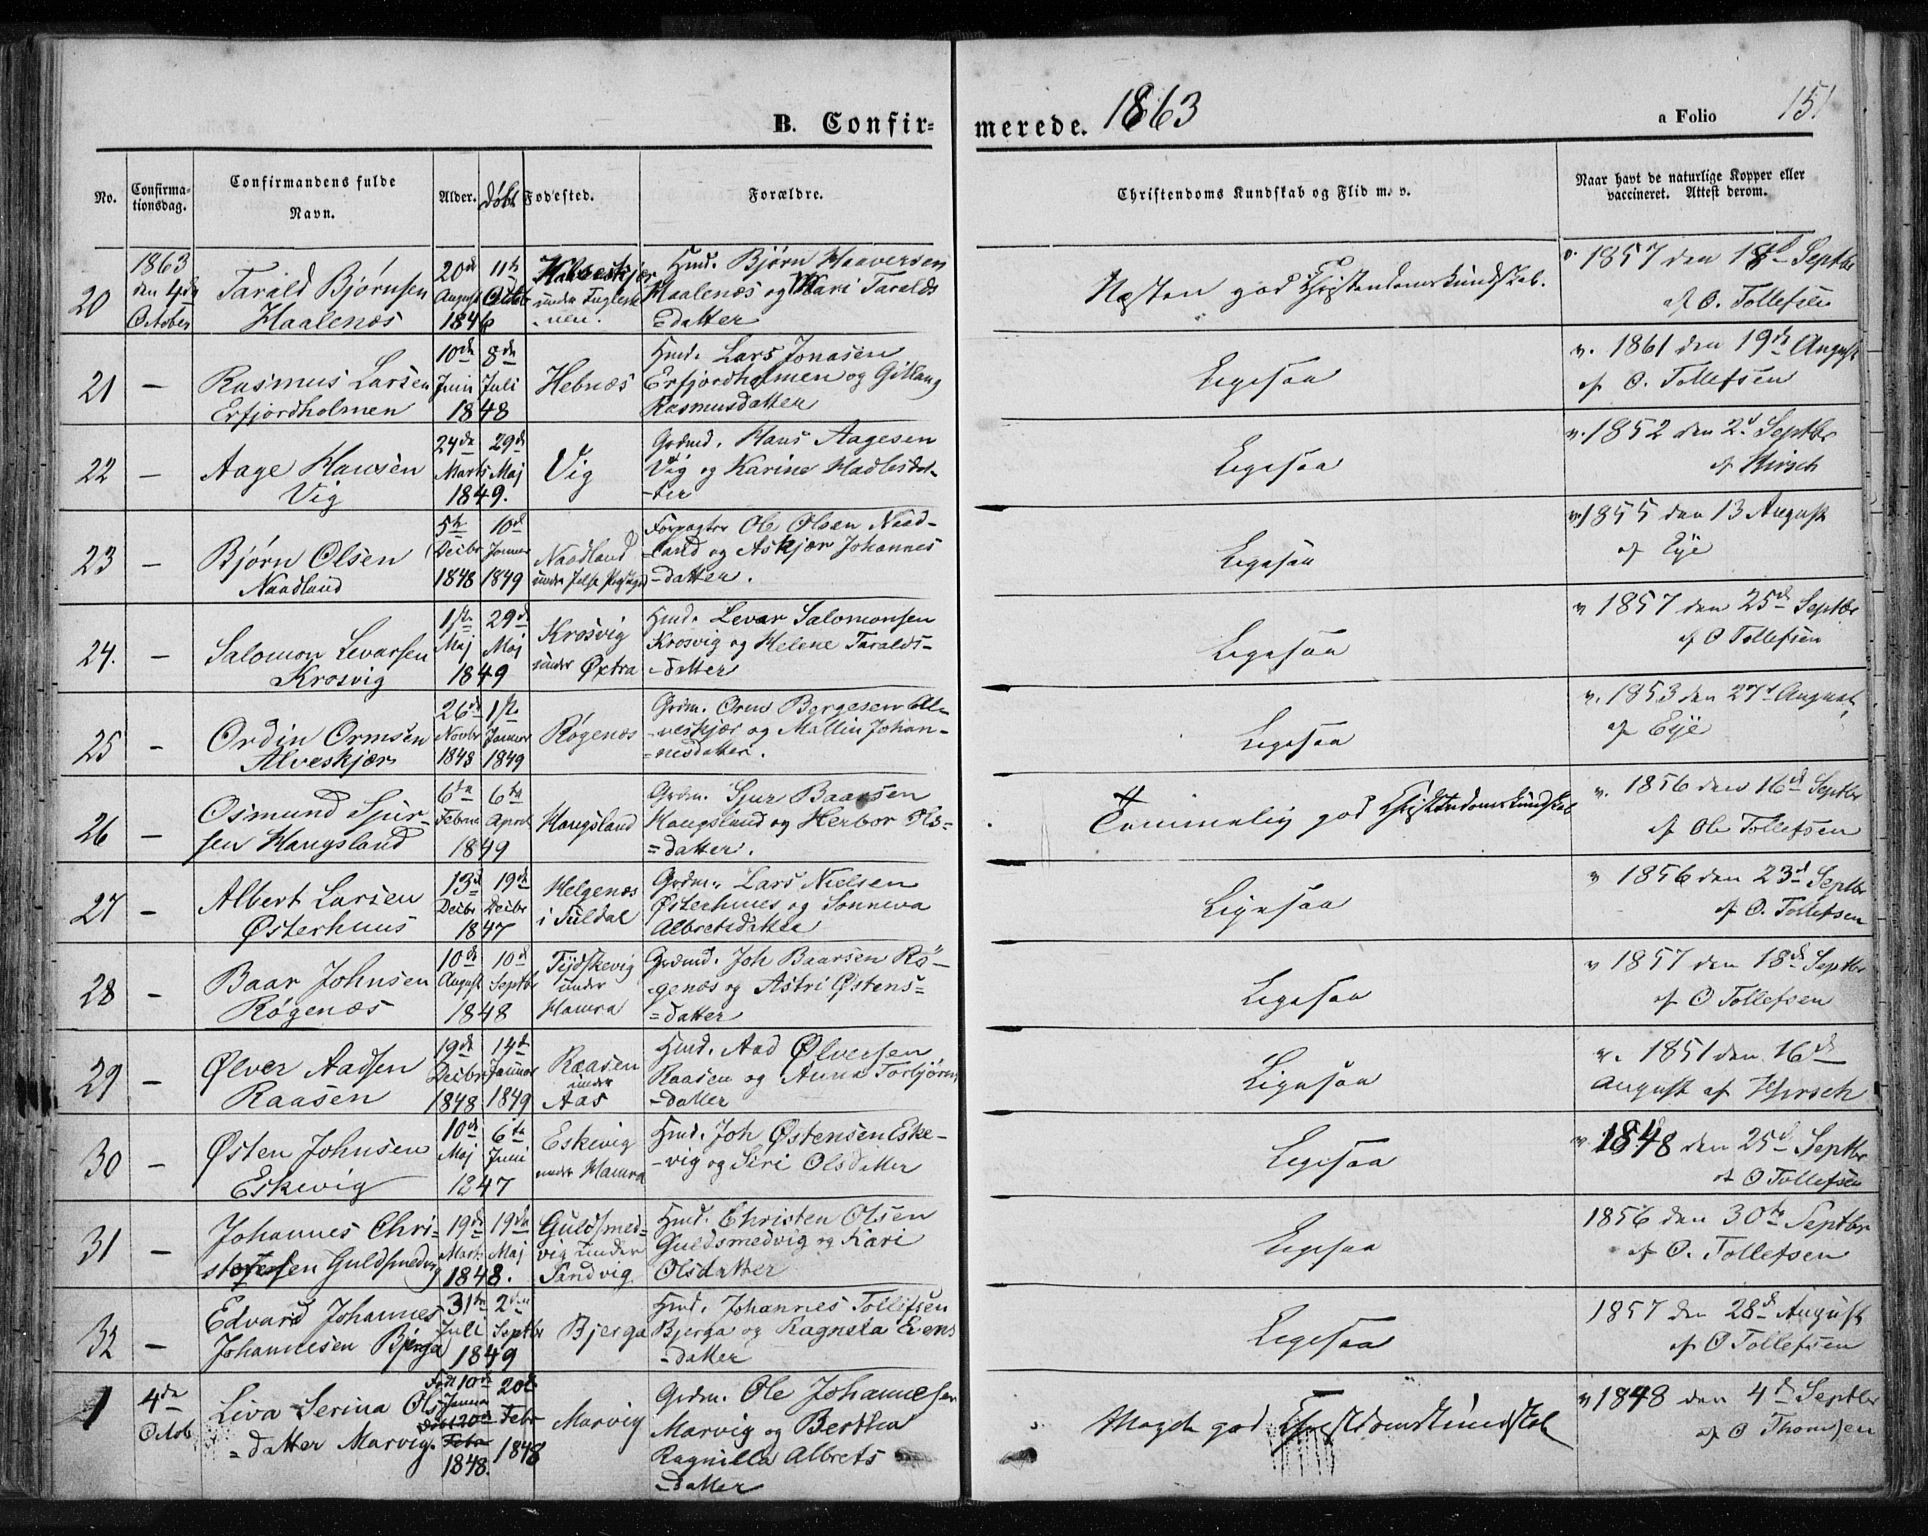 B. Confir=
merede. 1863
a Folio 151
No.
Confirma-
tionsdag.
Confirmandens fulde
Navn.
Alder.
Døbt
Fødested.
Forældre.
Christendoms Kundskab og Flid m. v.
Naar havt de naturlige Kopper eller
vaccineret. Attest derom.
20
1863
den 4de
October
Tarald Bjørnsen
Haalenæs
20de
August
1846
11te
Octbr
under Fugleste
-nen.
Hmd. Bjørn Haaversen
Haalenæs og Kari Taralds
=datter
Næsten god Christendomskundskab.
v. 1857 den 18d Septbr
af O. Tollefsen
21 —
Rasmus Larsen
Erfjordholmen
10de
Juni
8de
Juli
1848
Hebnæs
Hmd. Lars Jonasen
Erfjordholmen og Gitlaug
Rasmusdatter
Ligesaa
v. 1861 den 19de August
af O. Tollefsen
22 —
Aage Hansen
Vig
24de
Marts
29de
Maj
1849.
Vig
Grdmd. Hans Aagesen
Vig og Karine Hadlesdat-
-ter
Ligesaa
v. 1852 den 2d Septbr
af Hirsch
23 —
Bjørn Olsen
Naadland
5te
Decbr
1848
10de
Januar
1849
Naadland
under Jelse
Forpagter Ole Olsen Naad-
-land og Askjær Johannes
=datter.
Ligesaa
v. 1855 den 13 August
af Eye
24. —
Salomon Levarsen
Krosvig
1ste
Maj
29de
Maj
1849
Krosvig
under Øxtra
Hmd. Levar Salomonsen
Krosvig og Helene Taralds-
-datter
Ligesaa
v 1857 den 25de Septbr
af O Tollefsen
25 —
Ordin Ormsen
Alveskjær
26de
Novbr
1848
1ste
Januar
1849
Røgenæs
Grdm. Orm Bergesen Al-
-veskjær og Mallin Johan-
-nesdatter.
Ligesaa
v. 1853 den 27d August
af Eye
26 —
Osmund Sjur-
sen Haugsland
6te
Februar
6te
April
1849
Haugsland
Grdm. Sjur Baarsen
Haugsland og Herbor Ols=
=datter.
Temmelig god Christendomskundskab
v. 1856 den 16de Septbr
af Ole Tollefsen
27 —
Albert Larsen
Østerhuus
13de
Decbr
19de
Decbr
1847
Helgenæs
i Suldal
Grdm. Lars Nielsen
Østerhuus og Sonneva
Albretsdatter
Ligesaa
v 1856 den 23de Septbr
af O. Tollefsen
28 —
Baar Johnsen
Røgenæs
10de
August
10de
Septbr
1848
Tydskevig
under
Hamra
Grdmd. Joh Baarsen Rø-
genæs og Astri Østens=
=datter
Ligesaa
v 1857 den 18de Septbr
af O Tollefsen
29 —
Ølver Aadsen
Raasen
19de
Decbr
1848
14de
Januar
1849
Raasen
under
Aas
Hmd. Aad Ølversen
Raasen og Anna Torbjørns
-datter
Ligesaa
v. 1851 den 16de
August af Hirsch
30 —
Østen Johnsen
Eskevig
10de
Maj
6te
Juni
1847
Eskevig
under Hamra
Hmd. Joh Østensen Eske-
-vig og Siri Olsdatter
Ligesaa
v. 1848 den 25d Septbr
af O Tollefsen
31 —
Johannes Chri-
Guldsmedvig
19de
Marts
19de
Maj
1848.
Guldsmed-
vig under
Sandvig
Hmd. Christen Olsen
Guldsmedvig og Kari
Olsdatter
Ligesaa
1856 den 30te Septbr
af O. Tollefsen
32 —
Edvard Johannes
Johannesen Bjerga
31te
Juli
2den
Septbr
1849
Bjerga
Hmd. Johannes Tollefsen
Bjerga og Ragnela Evens
-datter
Ligesaa
1857 den 28de August
af O Tollefsen
1
4de
Octob
Liva Serina Ols
=datter Marvig.
Født 10de
Januar
Døbt 20de
Febr
1848.
20de
Febr
1848
Marvig
Grdm. Ole Johannesen
Marvig og Berthea
Ragnilla Albrets
-datter
Meget god Christendomskundskab
v 1848 den 4de Septbr
af O Thomsen